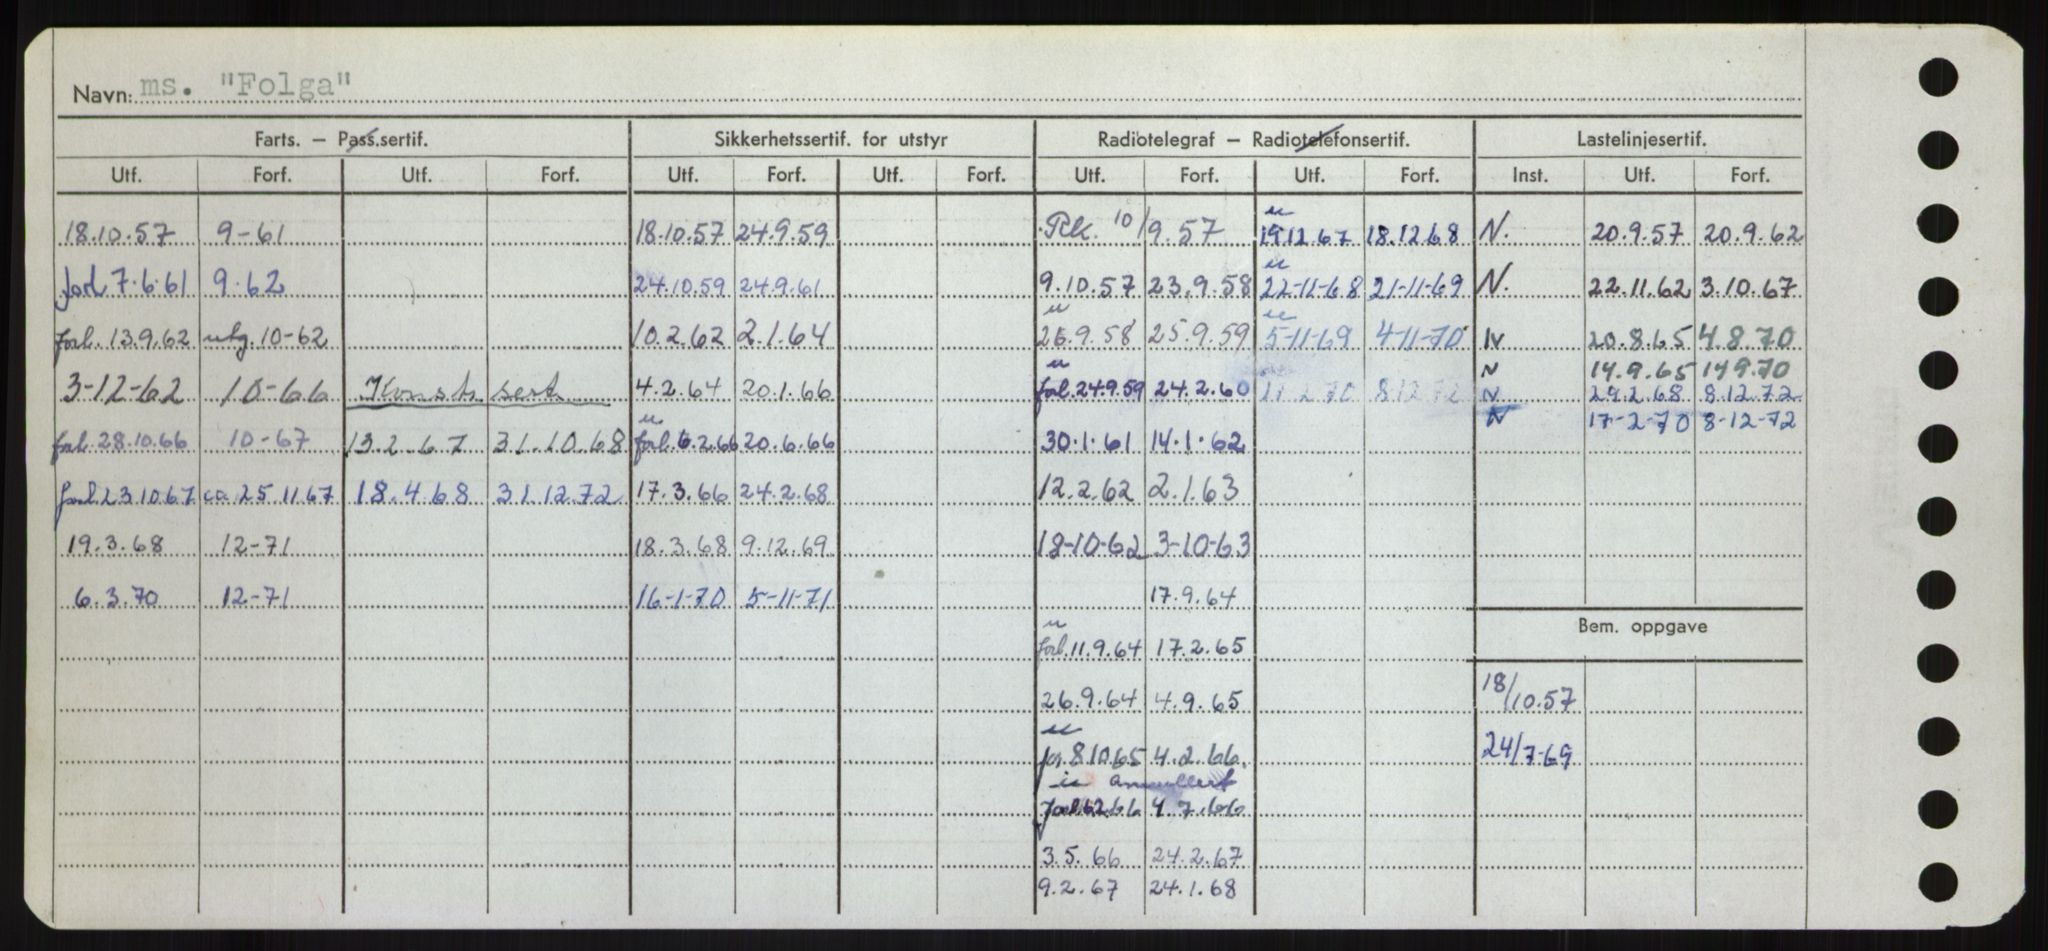 Navn: ms. "Folga"
Farts. — Pass.sertif. Sikkerhetssertif. for utstyr Radiotelegraf — Radiotelefonsertif. Lastelinjesertif.
Utf. Forf. Utf. Forf. Utf. Forf. Utf. Forf. Utf. Forf. Utf. Forf. Inst. Utf. Forf.
18.10.57 9-61 18.10.57 24.9.59 Rk. 10/9.57 u 19.12.67 18.12.68 N. 20.9.57 20.9.62
forl 7.6.61 9.62 24.10.59 24.9.61 9.10.57 23.9.58 u 22-11-68 21-11-69 N. 22.11.62 3.10.67
forl. 13.9.62 utg. 10-62 10.2.62 2.1.64 u 26.9.58 25.9.59 u 5-11-69 4-11-70 N 20.8.65 4.8.70
N 14.9.65 14.9.70
3-12-62 10-66 Konstr. sert. 4.2.64 20.1.66 u forl. 24.9.59 24.2.60 8.12.72 N 29.2.68 8.12.72
N 17-2-70 8-12-72
forl. 28.10.66 10-67 13.2.67 31.10.68 u forl. 6.2.66 20.6.66 30.1.61 14.1.62
forl. 23.10.67 ca. 25.11.67 18.4.68 31.12.72 17.3.66 24.2.68 12.2.62 2.1.63
19.3.68 12-71 18.3.68 9.12.69 18-10-62 3-10-63
6.3.70 12-71 16-1-70 5-11-71 17.9.64
Bem. oppgave
u forl. 11.9.64 17.2.65
26.9.64 4.9.65 18/10.57
u for. 8.10.65 4.2.66. 24/7-69
u annullert
forl. 6.2.66 4.7.66
3.5.66 24.2.67
9.2.67 24.1.68